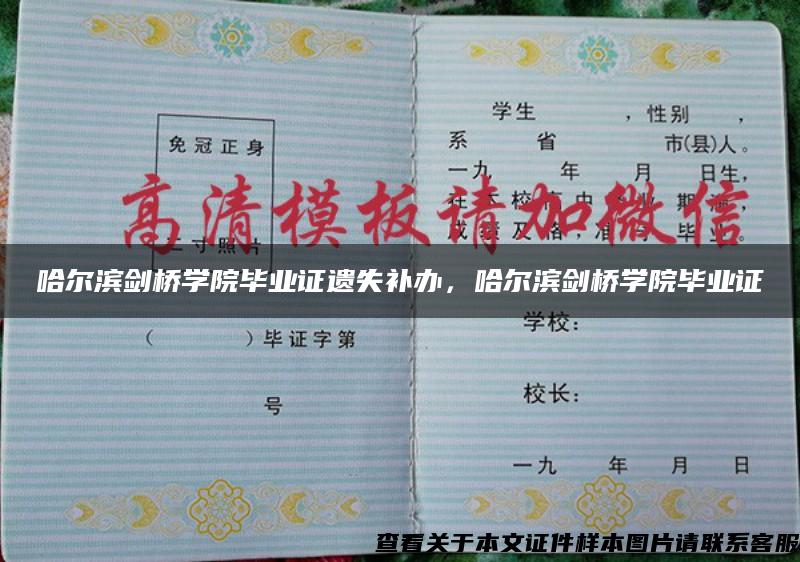 免冠正身
二寸照片
（ ）毕证字第
号
学生 ，性别 ，
系 省 市(县)人。
一九 年 月 日生，
在 校 中 业 期满，
成绩及格，准予毕业。
高清模板请加微信
哈尔滨剑桥学院毕业证遗失补办，哈尔滨剑桥学院毕业证
学校：
校长：
一九 年 月 日
查看关于本文证件样本图片请联系客服